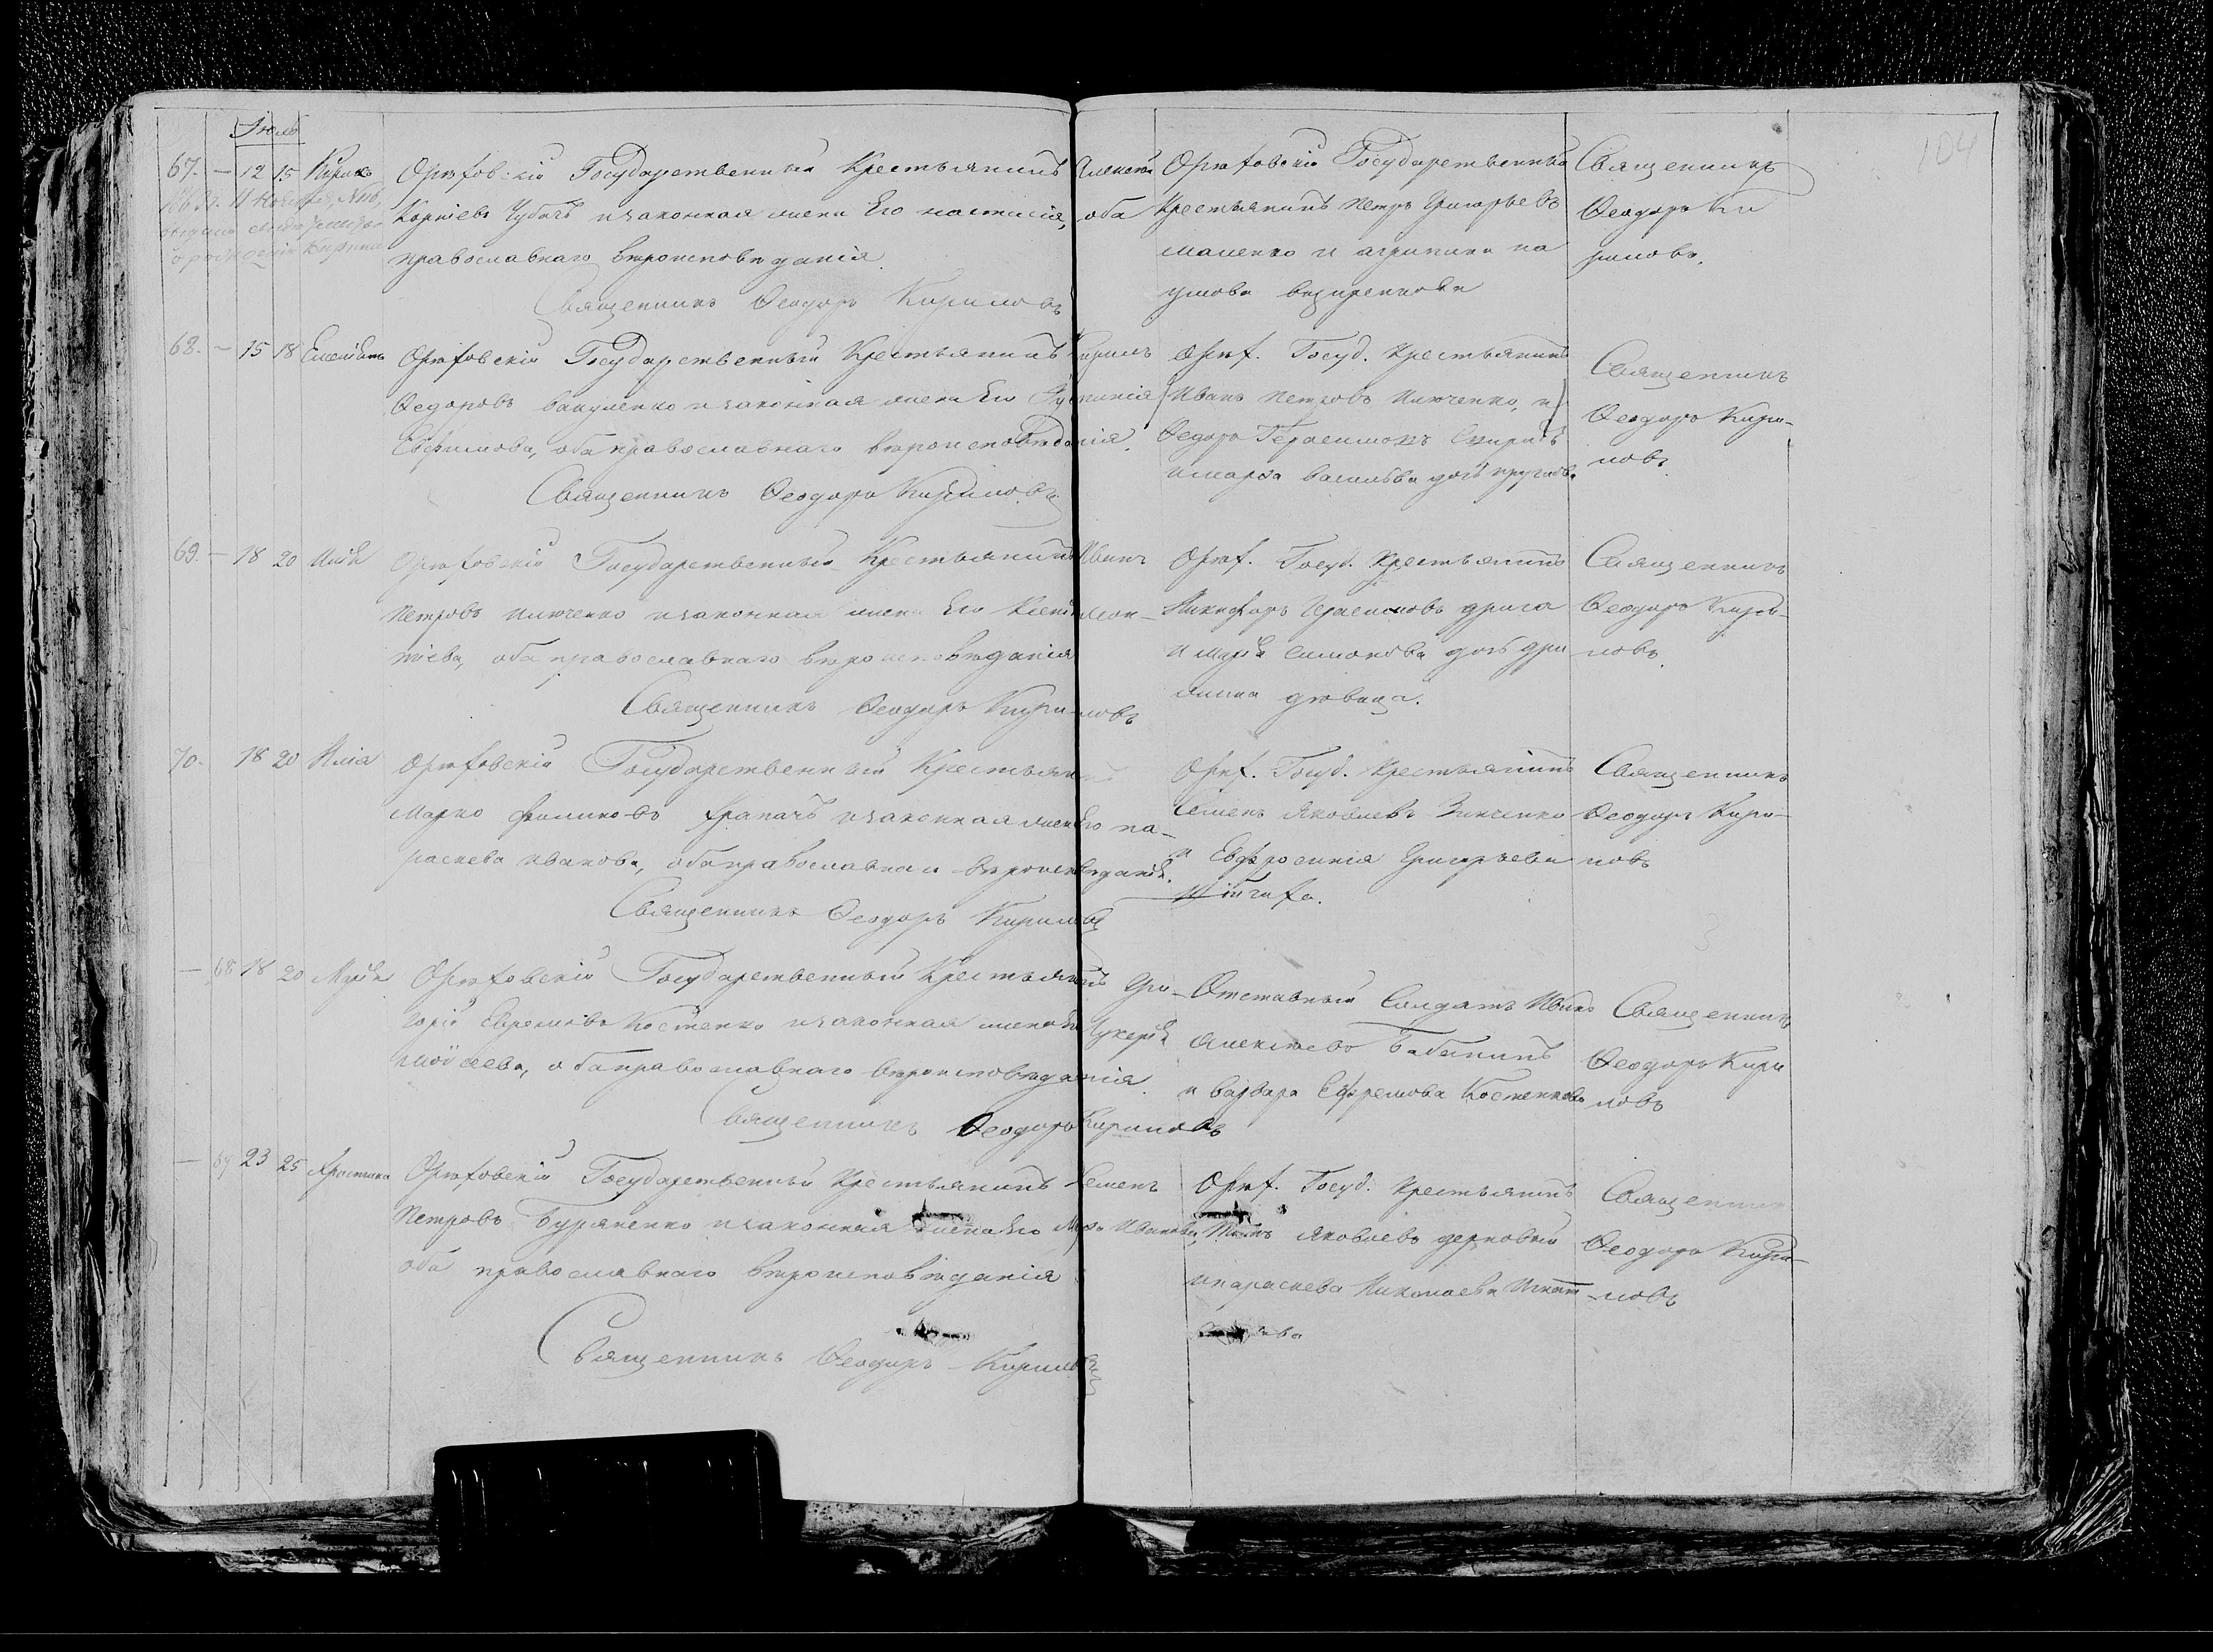 Іюль
104
67. — 12 15 Кирикъ
Орѣховскій Государственный Крестьянинъ Алексѣй
Корніевъ Чубачъ и законная жена Его настасія, оба
православнаго вѣроисповѣданія.
Священникъ Феодоръ Кириловъ
Орѣховскій Государственный
Крестьянинъ Петръ Григорьевъ
маценко и агрипина на
умова
Священникъ
Феодоръ Ки
риловъ.
68. — 15 18 Емеліанъ
Орѣховскій Государственный Крестьянинъ Кирилъ
Федоровъ бакуменко и законная жена Его
Евфимова, оба православнаго вѣроисповѣданія.
Священникъ Феодоръ Кириловъ
Орѣх. Госуд. Крестьянинъ
Иванъ Петровъ Ильченко, и
Федоръ Герасимовъ
и марфа васильева дочь
Священникъ
Феодоръ Кири-
ловъ.
69. — 18 20 Илія
Орѣховскій Государственный Крестьянинъ Иванъ
Петровъ Ильченко и законная жена Его Ксенія леон-
тіева, оба православнаго вѣроисповѣданія
Священникъ Феодоръ Кириловъ
Орѣх. Госуд. Крестьянинъ
Никифоръ Герасимовъ дрига
и Марія симонова дочь дри
жина дѣвица.
Священникъ
Феодоръ Кири-
ловъ.
70. 18 20 Илія
Орѣховскій Государственный Крестьянинъ
Марко Филиповъ Храпачъ и законная жена Его па-
раскева иванова, оба православнаго вѣроисповѣданія.
Священникъ Феодоръ Кириловъ
Орѣх. Госуд. Крестьянинъ
Семенъ Яковлевъ Зинченко
и Евфросинія Григорьева
Священникъ
Феодоръ Кири-
ловъ
— 68 18 20 Марія
Орѣховскій Государственный Крестьянинъ Гри-
горій Ефремовъ Костенко и законная жена Его Гликерія
моисеева, оба православнаго вѣроисповѣданія.
Священникъ Феодоръ Кириловъ
Отставный Солдатъ Иванъ
Алексѣевъ Бабанинъ
и варвара Ефремова Костенкова
Священникъ
Феодоръ Кири
ловъ
— 69 23 25 Христина
Орѣховскій Государственный Крестьянинъ Семенъ
Петровъ Буряченко и законная жена Его Иванова,
оба православнаго вѣроисповѣданія
Священникъ Феодоръ Кириловъ
Орѣх. Госуд. Крестьянинъ
Яковлевъ дерновый
и параскева Николаева
Священникъ
Феодоръ Кири-
ловъ